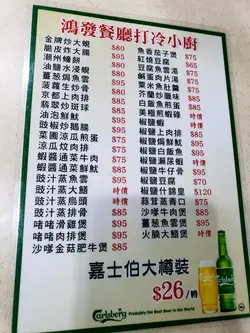 鴻發餐廳打冷小廚
金牌炒大蜆 $80
脆皮炸大腸 $80
潮州蠔餅 $90
油鹽水浸蜆 $80
薑葱焗魚雲 $90
菠蘿生炒骨 $80
京都上肉排 $85
翡翠炒斑球 $85
油泡鮮魷 $95
豉椒炒鵝腸 $95
菜脯涼瓜煎蛋 $75
涼瓜炆肉排 $85
蝦醬通菜牛肉 $75
蝦醬通菜鮮魷 $85
豉汁蒸魚雲 $90
豉汁蒸大鱔 時價
豉汁蒸烏頭 時價
豉汁蒸排骨 $85
啫啫滑雞煲 $85
啫啫肉排煲 $85
沙嗲金菇肥牛煲 $85
魚香茄子煲 $75
紅燒豆腐 $65
豆腐魚雲湯 $75
鹹蛋肉片湯 $75
粟米魚肚羹 $75
芥蘭炒臘味 $85
白飯魚煎蛋 $85
美極煎蝦碌 時價
椒鹽蝦 時價
椒鹽上肉排 $85
椒鹽焗鮮魷 $85
椒鹽白飯魚 $85
椒鹽瀨尿蝦 時價
椒鹽牛仔骨 $95
椒鹽豆腐 $75
椒鹽什錦皇 $120
蒜茸蒸青口 $75
沙嗲牛肉煲 $85
薑葱魚雲煲 $95
火腩大鱔煲 時價
嘉士伯大樽裝
$26/樽
Carlsberg Probably the Best Beer in the World
Carlsberg